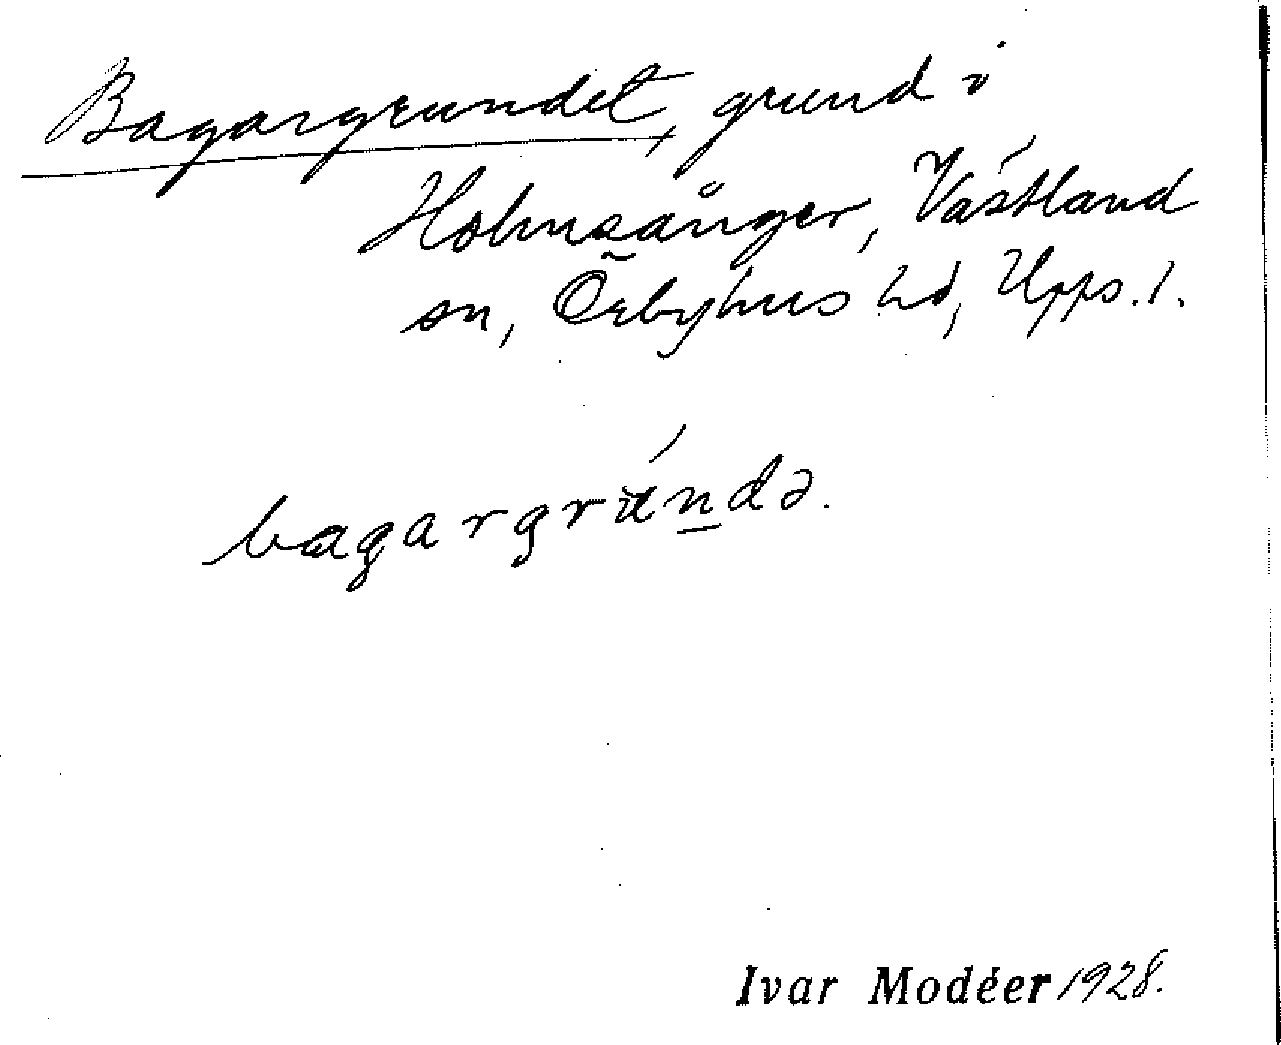 Bagargrundet, grund i
Holmsånger, Västland
sn, Örbyhus hd, Upps. l.
bagargrúndə.
Ivar Modéer 1928.